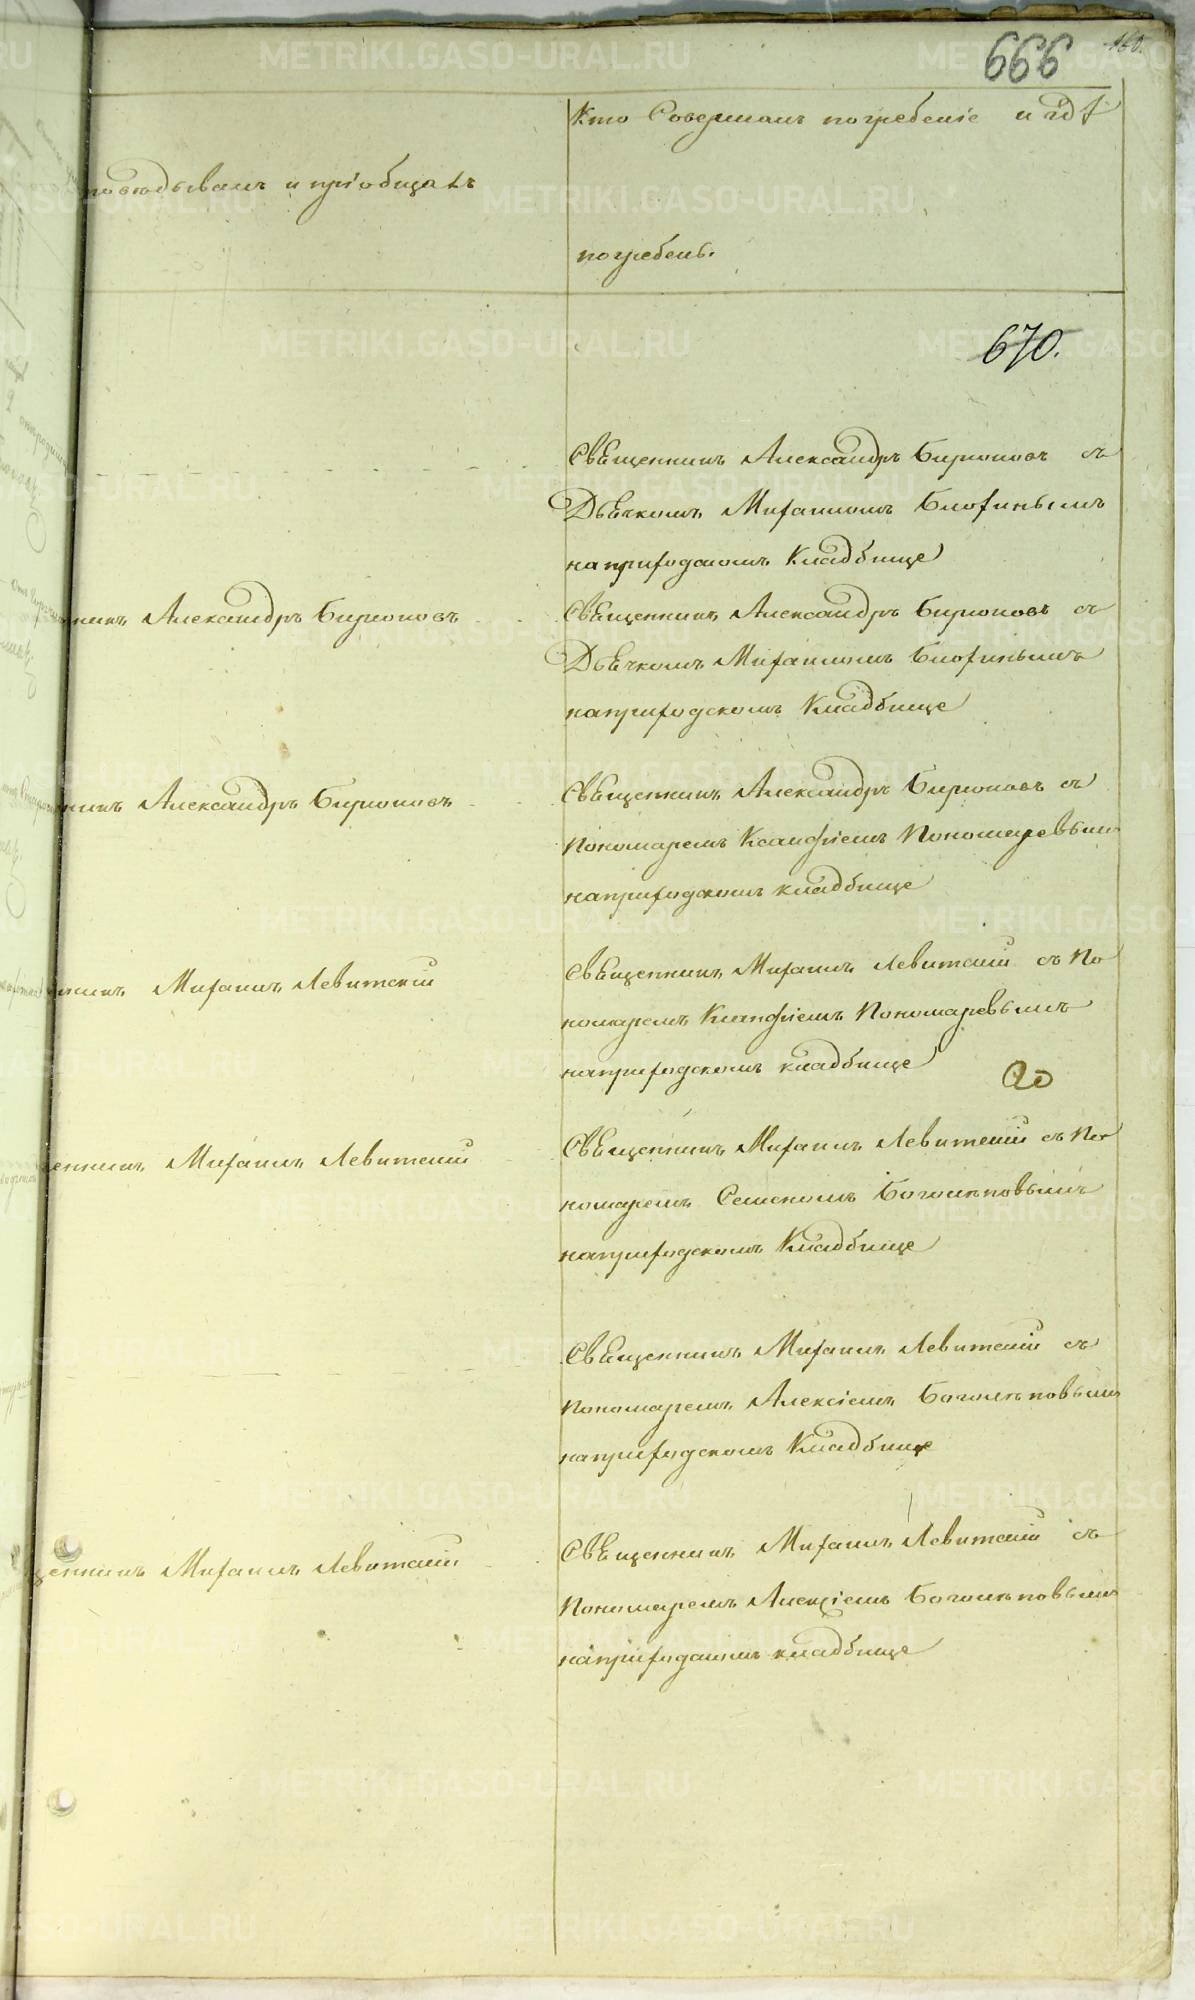 666
160.
Кто Совершалъ погребеніе и гдѣ
исповѣдывалъ и пріобщалъ
погребенъ.
670.
Священникъ Александръ Бирюковъ съ
Дьячкомъ Михаиломъ
на приходскомъ Кладбище
никъ Александръ Бирюковъ
Священникъ Александръ Бирюковъ съ
Дьячкомъ Михаиломъ
на приходскомъ Кладбище
никъ Александръ Бирюковъ
Священникъ Александръ Бирюковъ съ
Пономаремъ Ксанфіемъ Пономаревымъ
на приходскомъ кладбище
никъ Михаилъ Левитскій
Священникъ Михаилъ Левитскій съ По
номаремъ Ксанфіемъ Пономаревымъ
на приходскомъ кладбище
енникъ Михаилъ Левитскій
Священникъ Михаилъ Левитскій съ По
номаремъ Боголѣповымъ
на приходскомъ Кладбище
Священникъ Михаилъ Левитскій съ
Пономаремъ Алексіемъ Боголѣповымъ
на приходскомъ Кладбище
щенникъ Михаилъ Левитскій
Священникъ Михаилъ Левитскій съ
Пономаремъ Алексіемъ Боголѣповымъ
на приходскомъ кладбище
METRIKI.GASO-URAL.RU